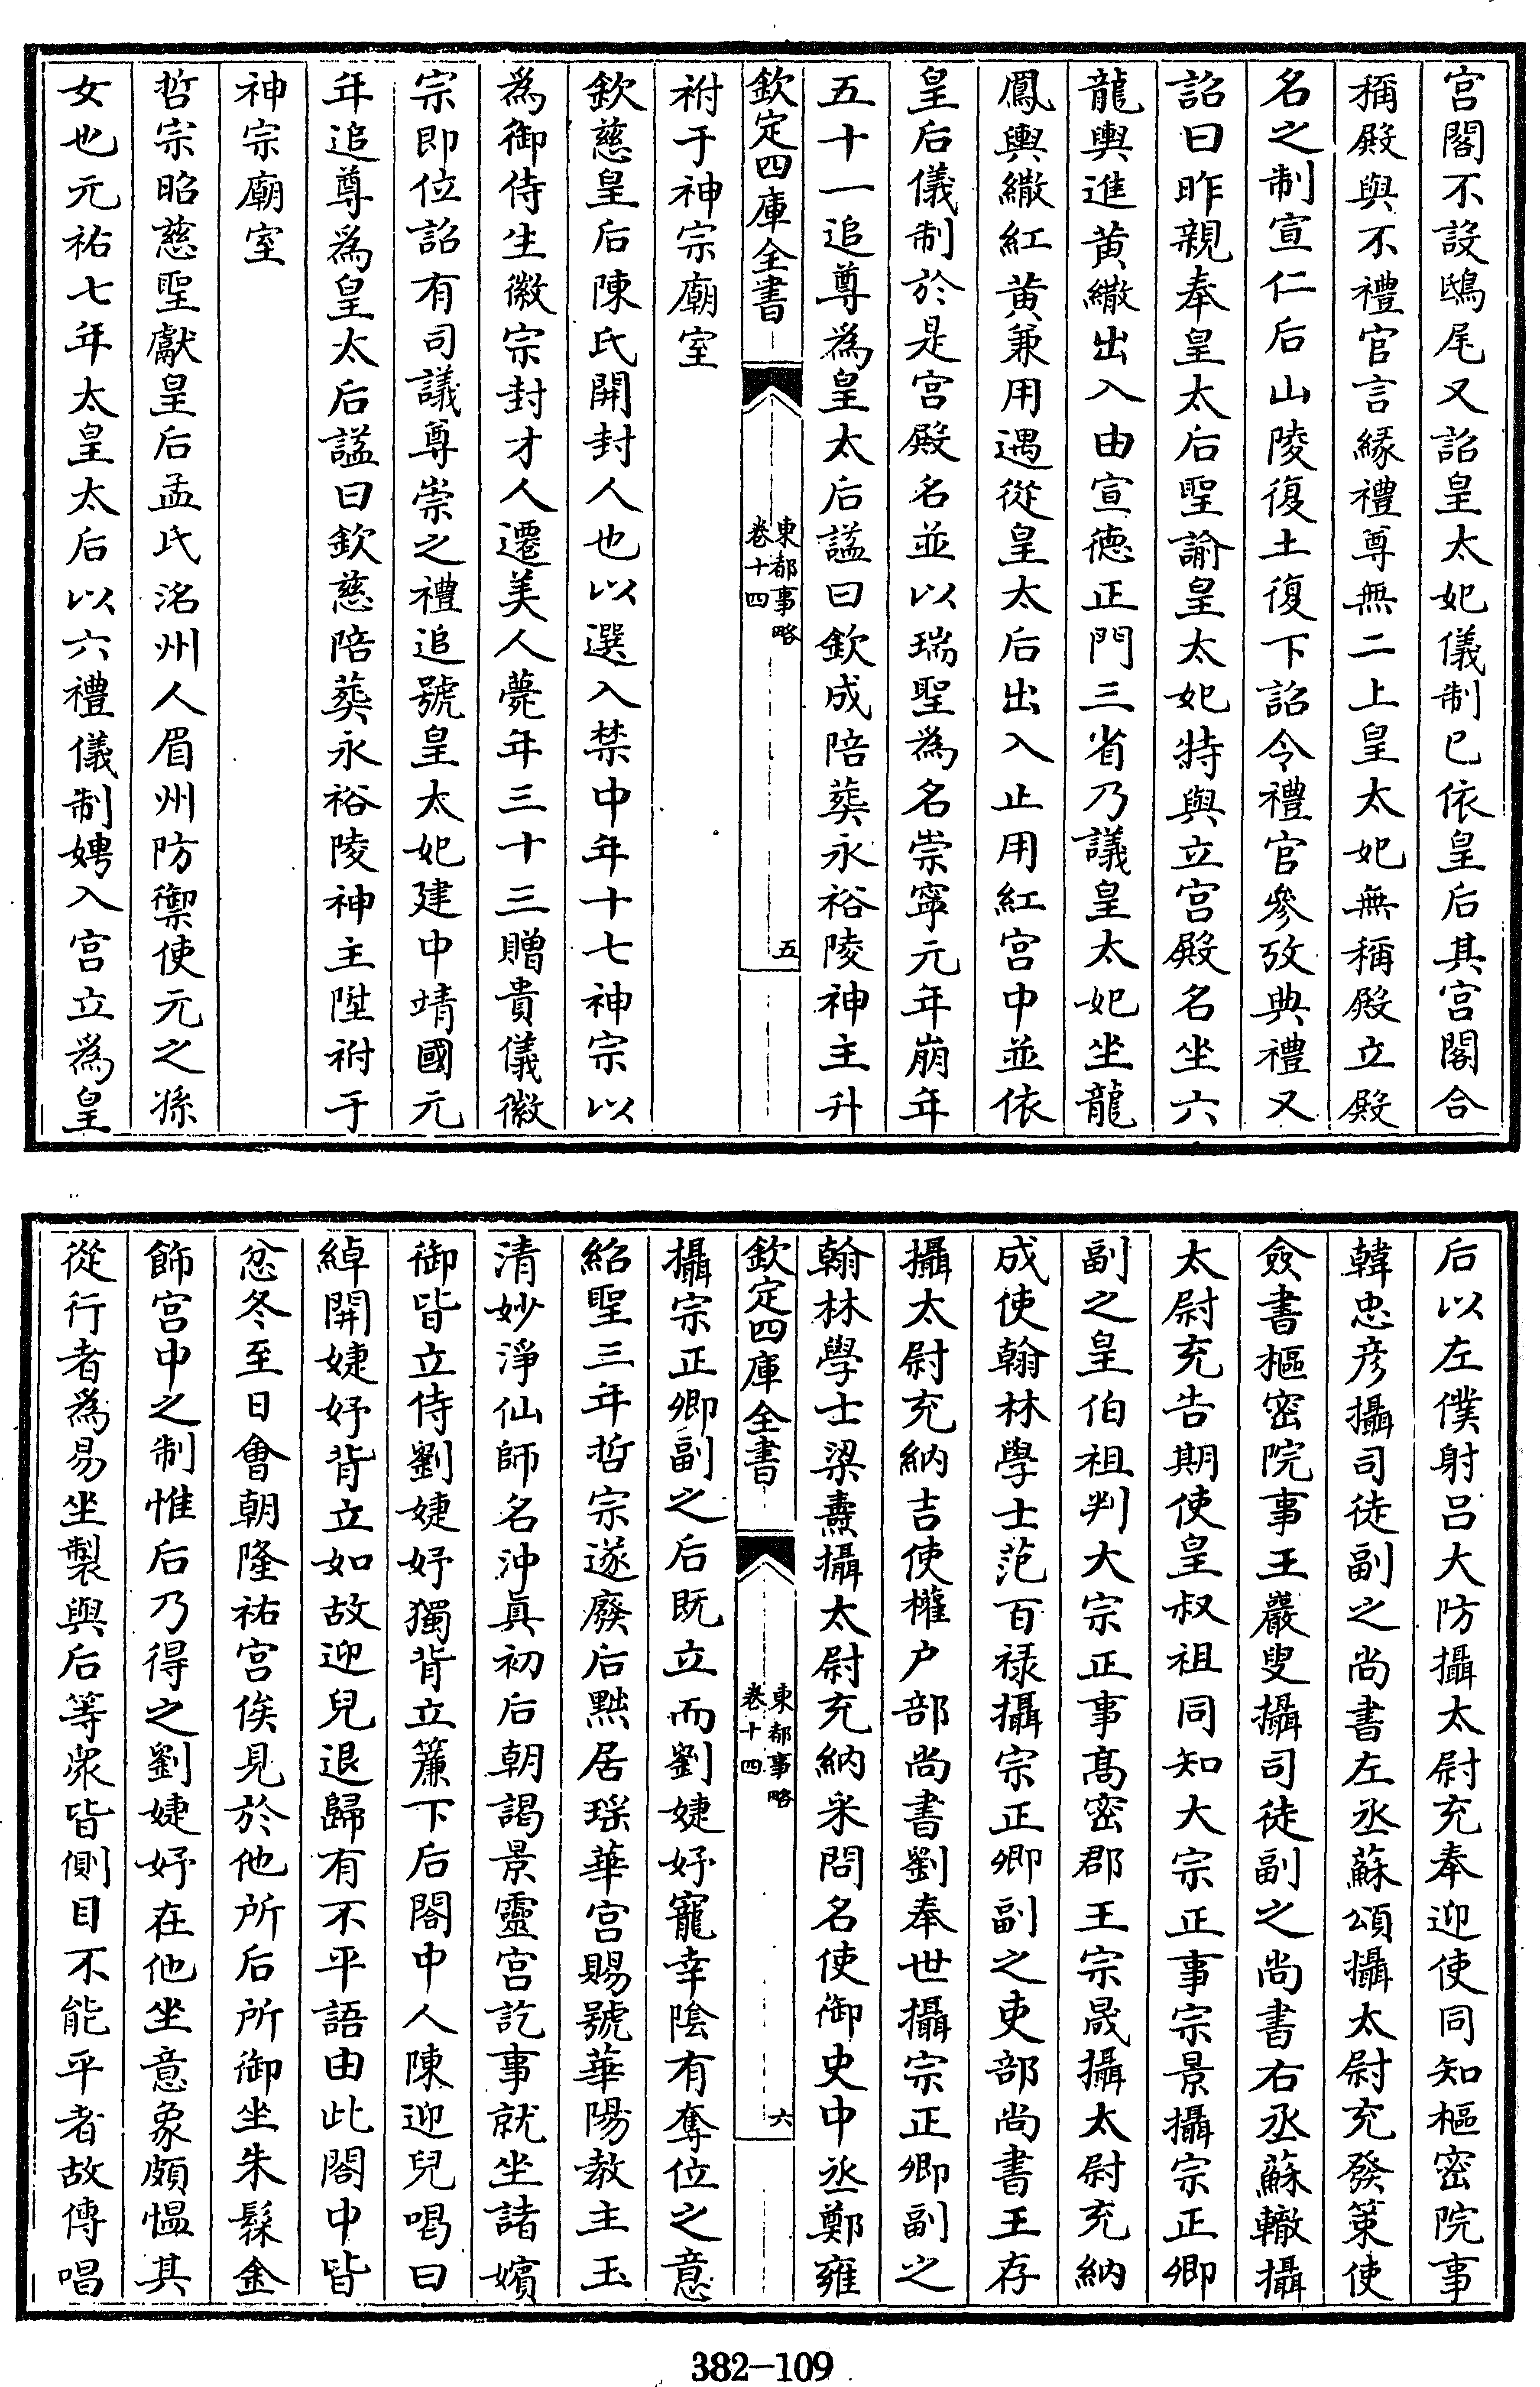 宫閣不設鴟尾又詔皇太妃儀制已依皇后其宫閣合
稱殿與不禮官言緣禮尊無二上皇太妃無稱殿立殿
名之制宣仁后山陵復土復下詔令禮官參攷典禮又
詔曰昨親奉皇太后聖諭皇太妃特與立宫殿名坐六
龍輿進黄繖出入由宣德正門三省乃議皇太妃坐龍
鳳輿繖紅黄兼用遇從皇太后出入止用紅宫中並依
皇后儀制於是宫殿名並以瑞聖為名崇寧元年崩年
五十一追尊為皇太后諡曰欽成陪葬永裕陵神主升
欽定四庫全書
東都事略
卷十四
五
祔于神宗廟室
欽慈皇后陳氏開封人也以選入禁中年十七神宗以
為御侍生徽宗封才人遷美人薨年三十三贈貴儀徽
宗即位詔有司議尊崇之禮追號皇太妃建中靖國元
年追尊為皇太后諡曰欽慈陪葬永裕陵神主陞祔于
神宗廟室
哲宗昭慈聖獻皇后孟氏洺州人眉州防禦使元之孫
女也元祐七年太皇太后以六禮儀制娉入宫立為皇
后以左僕射吕大防攝太尉充奉迎使同知樞密院事
韓忠彦攝司徒副之尚書左丞蘇頌攝太尉充發策使
僉書樞密院事王巖叟攝司徒副之尚書右丞蘇轍攝
太尉充告期使皇叔祖同知大宗正事宗景攝宗正卿
副之皇伯祖判大宗正事髙密郡王宗晟攝太尉充納
成使翰林學士范百禄攝宗正卿副之吏部尚書王存
攝太尉充納吉使權户部尚書劉奉世攝宗正卿副之
翰林學士梁燾攝太尉充納采問名使御史中丞鄭雍
欽定四庫全書
東都事略
卷十四
六
攝宗正卿副之后既立而劉婕妤寵幸隂有奪位之意
紹聖三年哲宗遂廢后黜居瑶華宫賜號華陽教主玉
清妙淨仙師名沖真初后朝謁景靈宫訖事就坐諸嬪
御皆立侍劉婕妤獨背立簾下后閤中人陳迎兒喝曰
綽開婕妤背立如故迎兒退歸有不平語由此閤中皆
忿冬至日會朝隆祐宫俟見於他所后所御坐朱髹金
飾宫中之制惟后乃得之劉婕妤在他坐意象頗愠其
從行者為易坐製與后等衆皆側目不能平者故傳唱
382-109